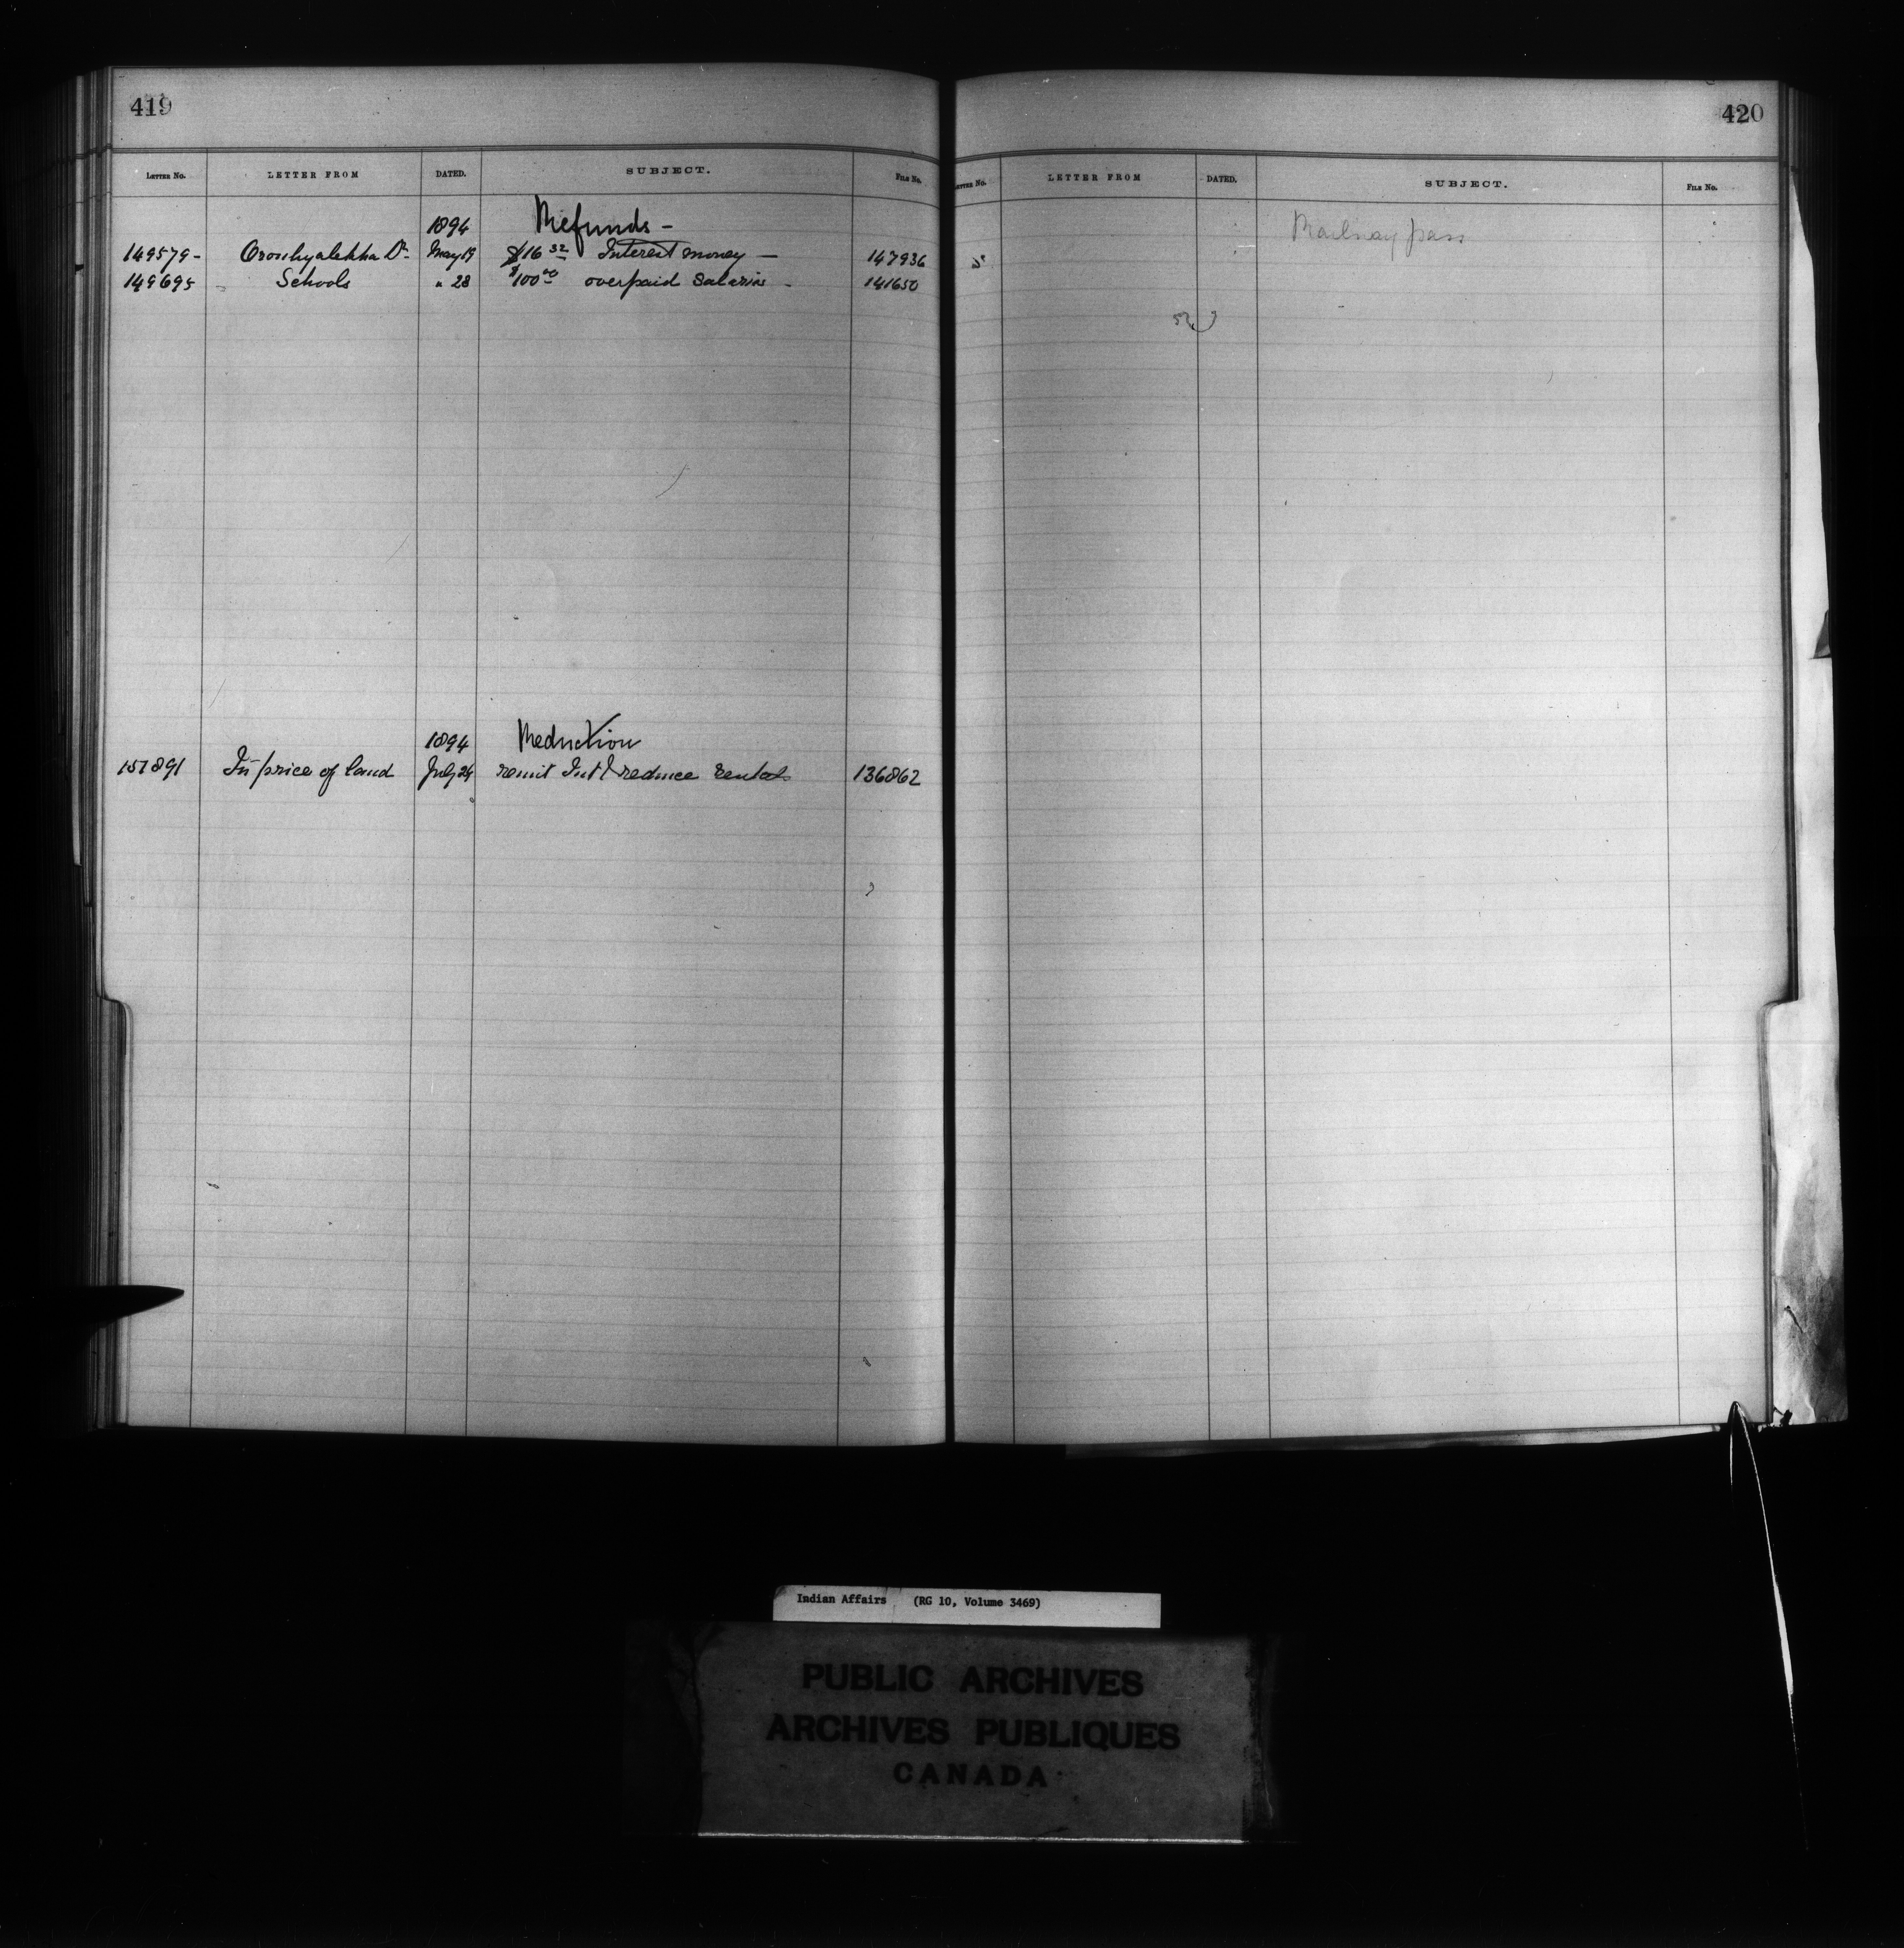 419
LETTER No. LETTER FROM DATED. SUBJECT. FILE No.
1894 Refunds -
149579 - Oronhyatekha Dr. May 19 $16 32 Interest money — 147936
149695 - Schools " 28 $100 00 overpaid salaries - 141650
1894 Reduction
151891 In price of land July 24 remit Int & reduce rentals 136862
420
LETTER No. LETTER FROM DATED. SUBJECT. FILE No.
Railway pass
Indian Affairs (RG 10, Volume 3469)
PUBLIC ARCHIVES
ARCHIVES PUBLIQUES
CANADA